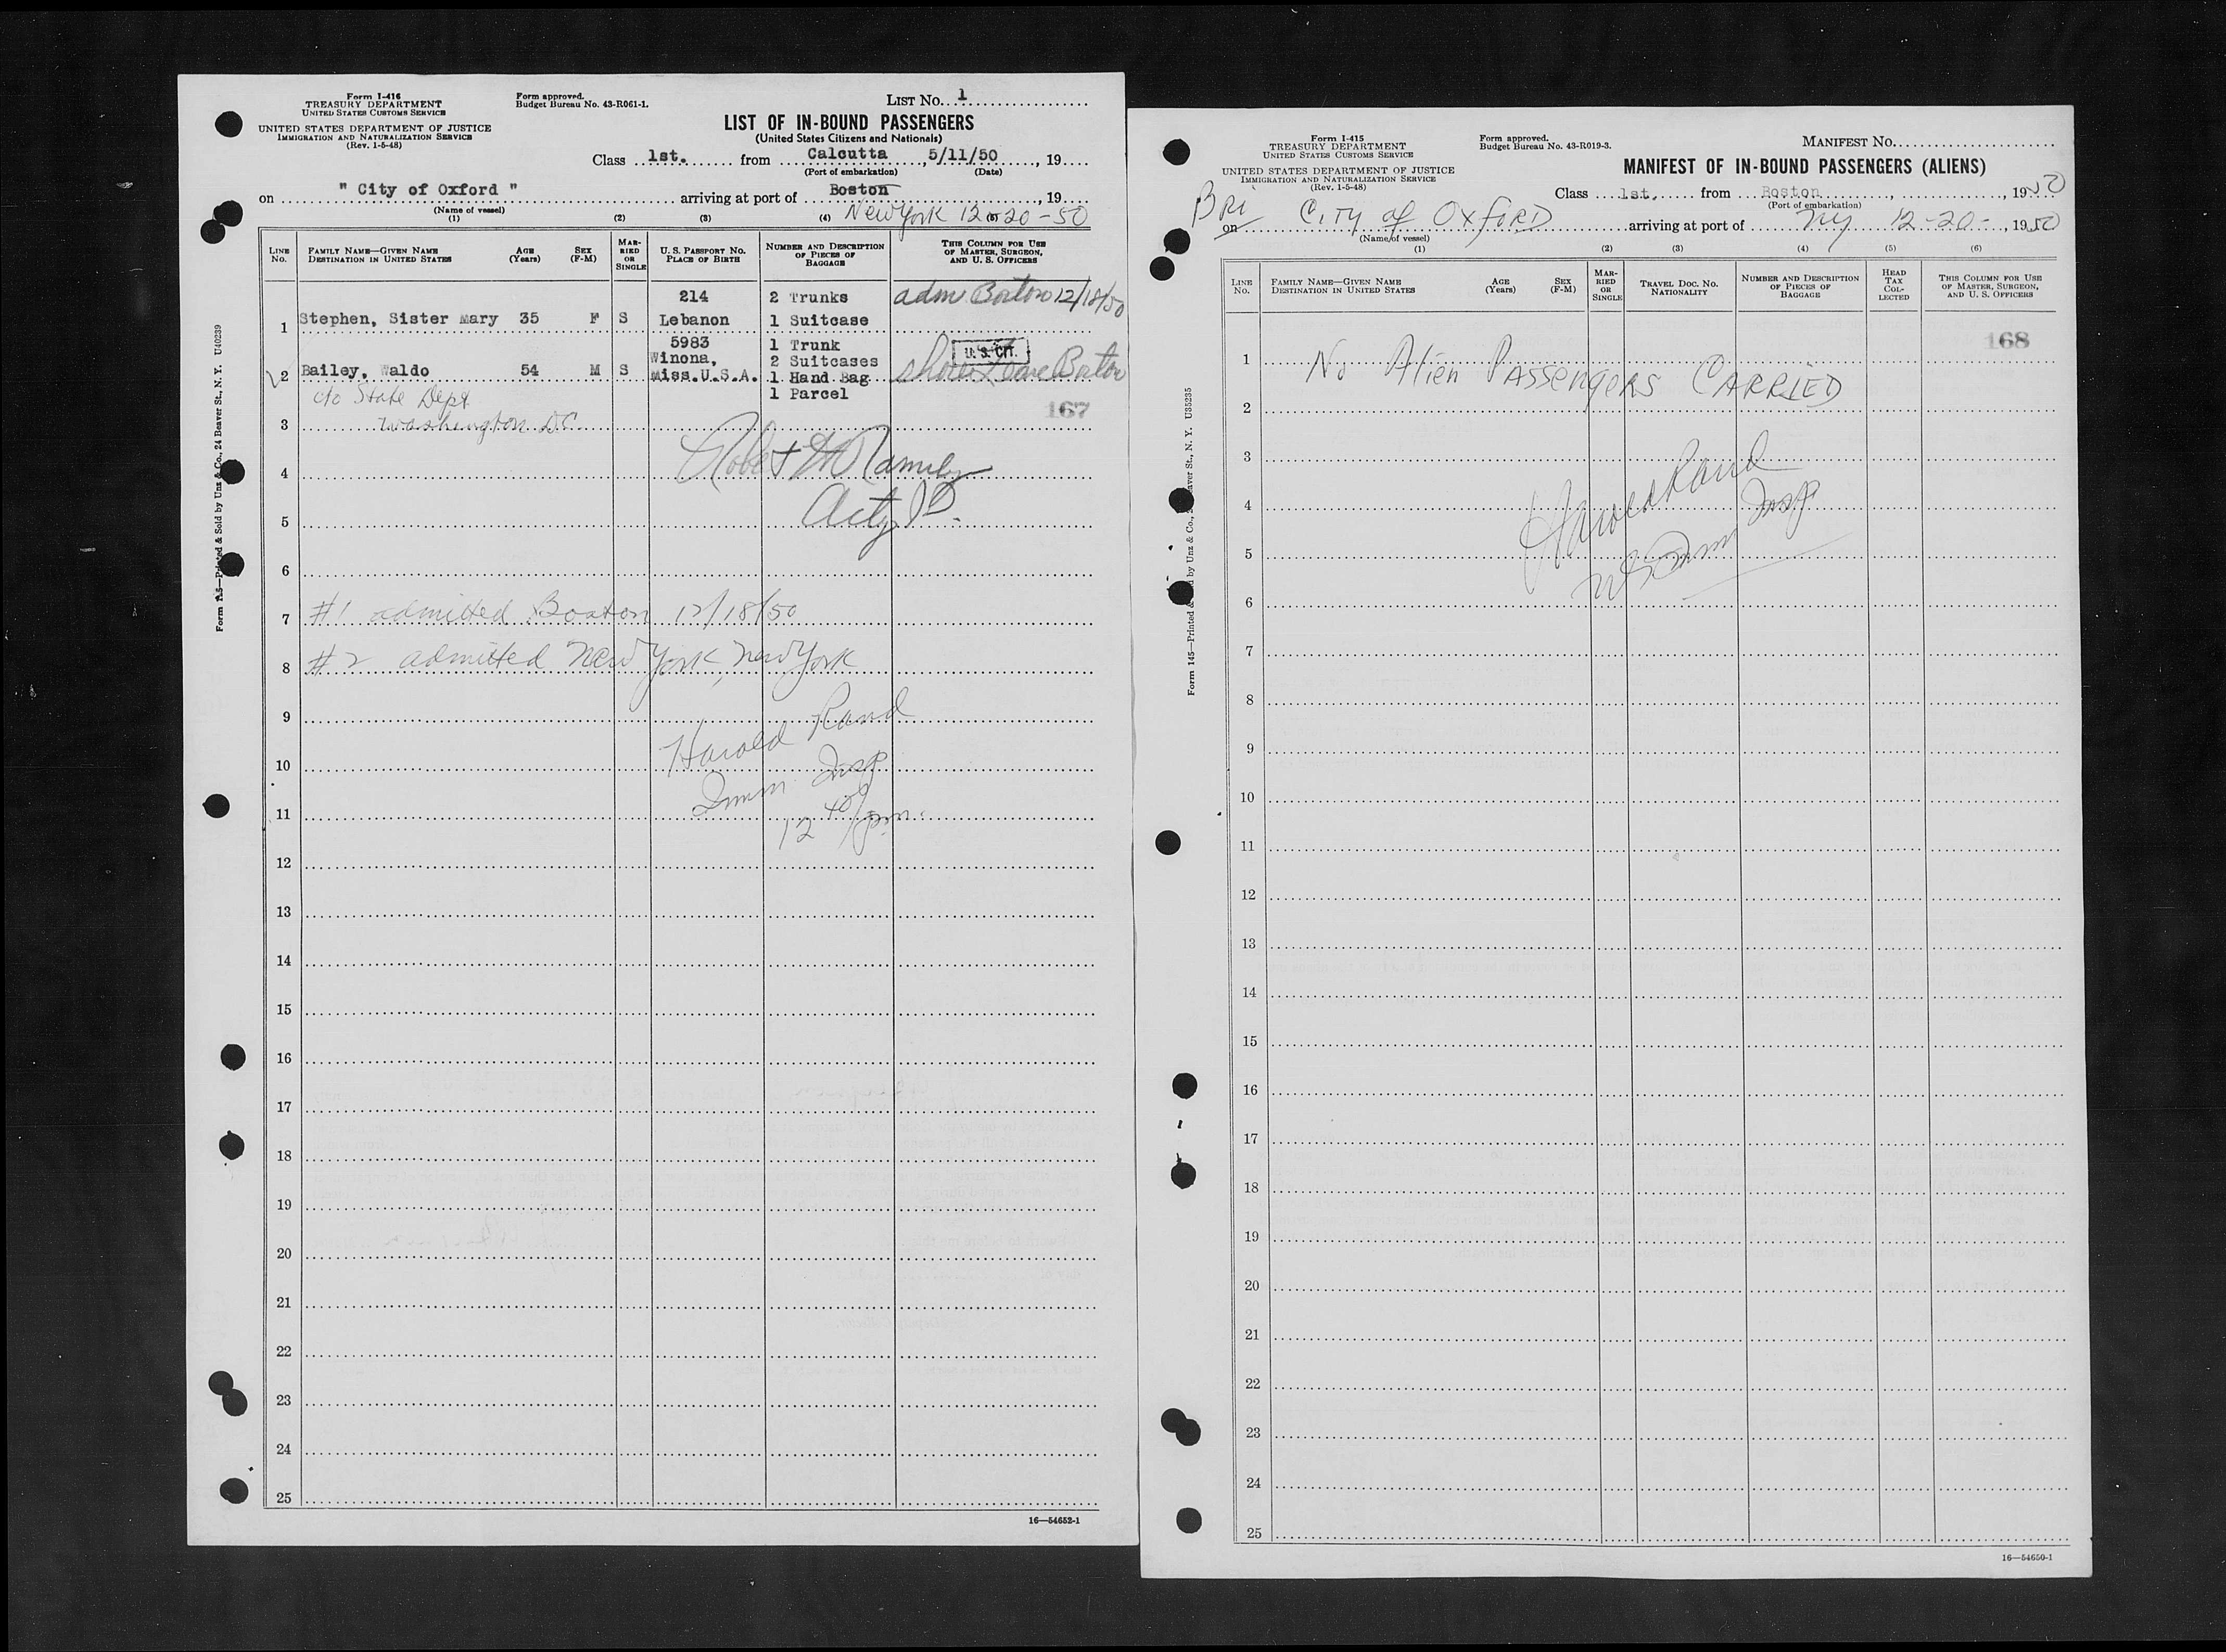 Form I-416
TREASURY DEPARTMENT
UNITED STATES CUSTOMS SERVICE
UNITED STATES DEPARTMENT OF JUSTICE
IMMIGRATION AND NATURALIZATION SERVICE
(Rev. 1-5-48)
Form approved.
Budget Bureau No. 43-R061-1.
LIST NO. 1
LIST OF IN-BOUND PASSENGERS
(United States Citizens and Nationals)
Class 1st. from Calcutta, 5/11/50, 19
(Port of embarkation) (Date)
on " City of Oxford " arriving at port of Boston, 19
(Name of vessel)
New York 12-20-50
(1) (2) (3) (4)
LINE No. FAMILY NAME—GIVEN NAME DESTINATION IN UNITED STATES AGE (Years) SEX (F-M) MARRIED OR SINGLE U. S. PASSPORT NO. PLACE OF BIRTH NUMBER AND DESCRIPTION OF PIECES OF BAGGAGE THIS COLUMN FOR USE OF MASTER, SURGEON, AND U. S. OFFICERS
214 2 Trunks adm Boston 12/18/50
1 Stephen, Sister Mary 35 F S Lebanon 1 Suitcase
5983 1 Trunk
Winona, 2 Suitcases U. S. CIT.
2 Bailey, Waldo 54 M S Miss.U.S.A. 1 Hand Bag Shore Leave Boston
c/o State Dept 1 Parcel
167
3 Washington DC
4 Robert
5
6
7 #1 admitted Boston 12/18/50
8 #2 admitted New York, New York
9 Harold Rand
10 Imm Insp
11 12 40/pm.
12
13
14
15
16
17
18
19
20
21
22
23
24
25
16—54652-1
Form 145—Printed & Sold by Unz & Co., 24 Beaver St., N. Y. U40239
Form I-415
TREASURY DEPARTMENT
UNITED STATES CUSTOMS SERVICE
UNITED STATES DEPARTMENT OF JUSTICE
IMMIGRATION AND NATURALIZATION SERVICE
(Rev. 1-5-48)
Form approved.
Budget Bureau No. 43-R019-3.
MANIFEST NO.
MANIFEST OF IN-BOUND PASSENGERS (ALIENS)
Class 1st. from Boston, , 1950
(Port of embarkation)
Bri
on City of Oxford arriving at port of NY 12-20-, 1950
(Name of vessel)
(1) (2) (3) (4) (5) (6)
LINE No. FAMILY NAME—GIVEN NAME DESTINATION IN UNITED STATES AGE (Years) SEX (F-M) MARRIED OR SINGLE TRAVEL DOC. NO. NATIONALITY NUMBER AND DESCRIPTION OF PIECES OF BAGGAGE HEAD TAX COLLECTED THIS COLUMN FOR USE OF MASTER, SURGEON, AND U. S. OFFICERS
168
1 No Alien Passengers CARRIED
2
3
4 Harold Rand
5 US Imm Insp
6
7
8
9
10
11
12
13
14
15
16
17
18
19
20
21
22
23
24
25
16—54650-1
Form 145—Printed & Sold by Unz & Co., Beaver St., N. Y. U35235